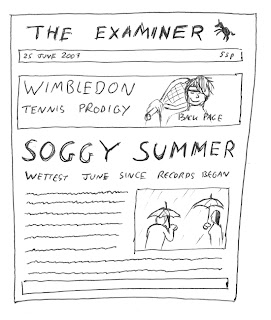 THE EXAMINER
25 JUNE 2007 55p
WIMBLEDON
TENNIS PRODIGY
BACK PAGE
SOGGY SUMMER
WETTEST JUNE SINCE RECORDS BEGAN